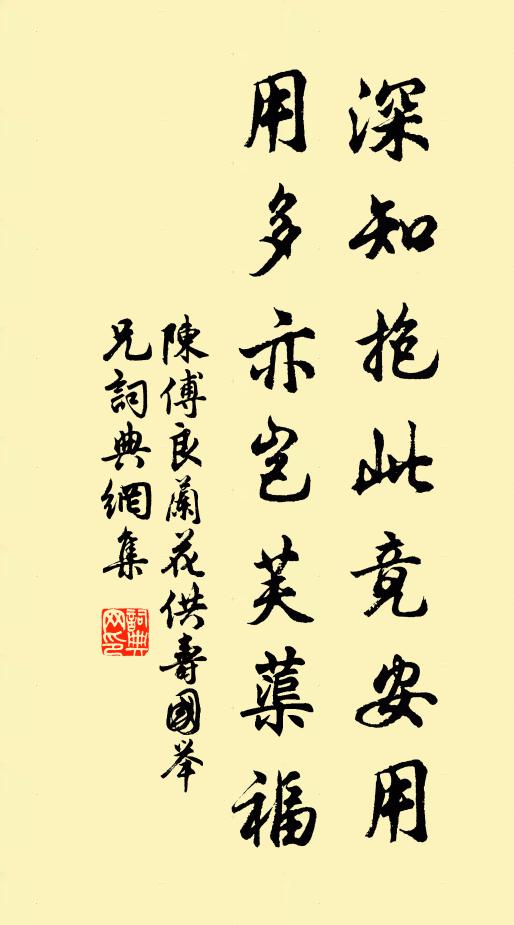 深知抱此竟安用
用多亦豈芙蕖福
陳傅良蘭花供壽國舉
兄詞典網集
詞典網印